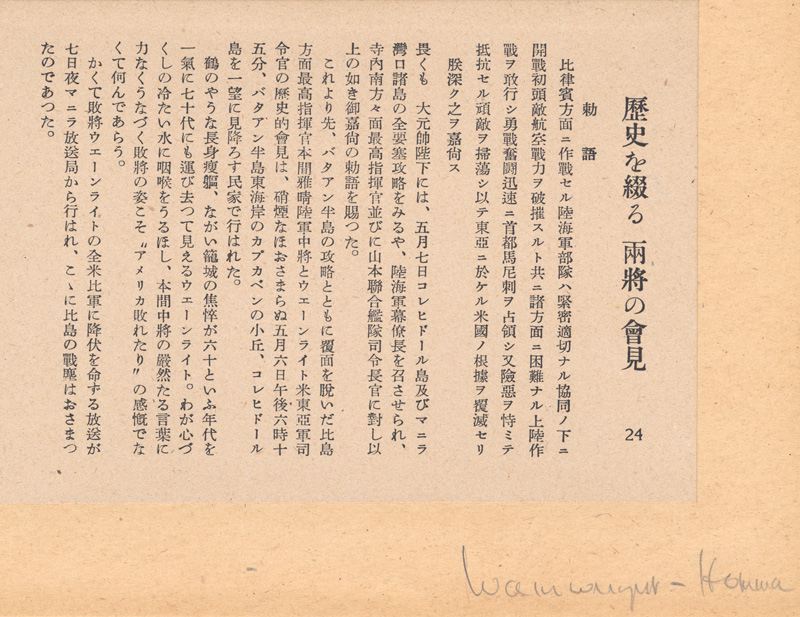 歷史を綴る 兩將の會見
24
勅語
比律賓方面ニ作戰セル陸海軍部隊ハ緊密適切ナル協同ノ下ニ
開戰初頭敵航空戰力ヲ破摧スルト共ニ諸方面ニ困難ナル上陸作
戰ヲ敢行シ勇戰奮鬪迅速ニ首都馬尼刺ヲ占領シ又險惡ヲ恃ミテ
抵抗セル頑敵ヲ掃蕩シ以テ東亞ニ於ケル米國ノ根據ヲ覆滅セリ
朕深ク之ヲ嘉尙ス
畏くも 大元帥陛下には、五月七日コレヒドール島及びマニラ
灣口諸島の全要塞攻略をみるや、陸海軍幕僚長を召させられ、
寺內南方々面最高指揮官並びに山本聯合艦隊司令長官に對し以
上の如き御嘉尙の勅語を賜つた。
これより先、バタアン半島の攻略とともに覆面を脫いだ比島
方面最高指揮官本間雅晴陸軍中將とウエーンライト米東亞軍司
令官の歷史的會見は、硝煙なほおさまらぬ五月六日午後六時十
五分、バタアン半島東海岸のカブカベンの小丘、コレヒドール
島を一望に見降ろす民家で行はれた。
鶴のやうな長身瘦軀、ながい籠城の焦悴が六十といふ年代を
一氣に七十代にも運び去つて見えるウエーンライト。わが心づ
くしの冷たい水に咽喉をうるほし、本間中將の嚴然たる言葉に
力なくうなづく敗將の姿こそ〝アメリカ敗れたり〟の感慨でな
くて何んであらう。
かくて敗將ウエーンライトの全米比軍に降伏を命ずる放送が
七日夜マニラ放送局から行はれ、こゝに比島の戰塵はおさまつ
たのであつた。
Wainwright - Homma